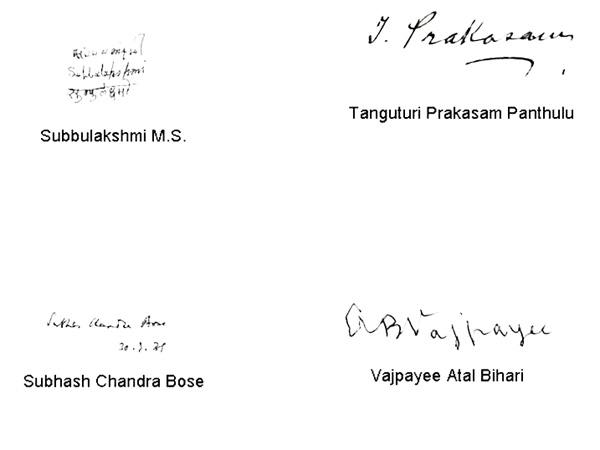 Subbulakshmi
सुब्बुलक्ष्मी
Subbulakshmi M.S.
T. Prakasam
Tanguturi Prakasam Panthulu
Subhas Chandra Bose
Subhash Chandra Bose
ABVajpayee
Vajpayee Atal Bihari